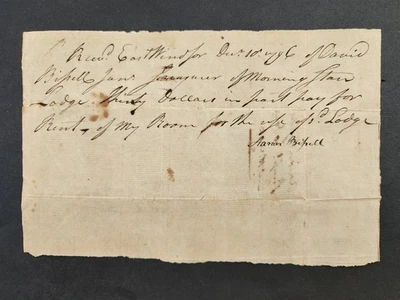 Recd. East Windsor Decr. 10th 1796 of David
Bissell Junr Treasurer of Morning Star
Lodge Thirty Dollars in part pay for
Rent of my Room for the use of sd. Lodge
Aaron Bissell